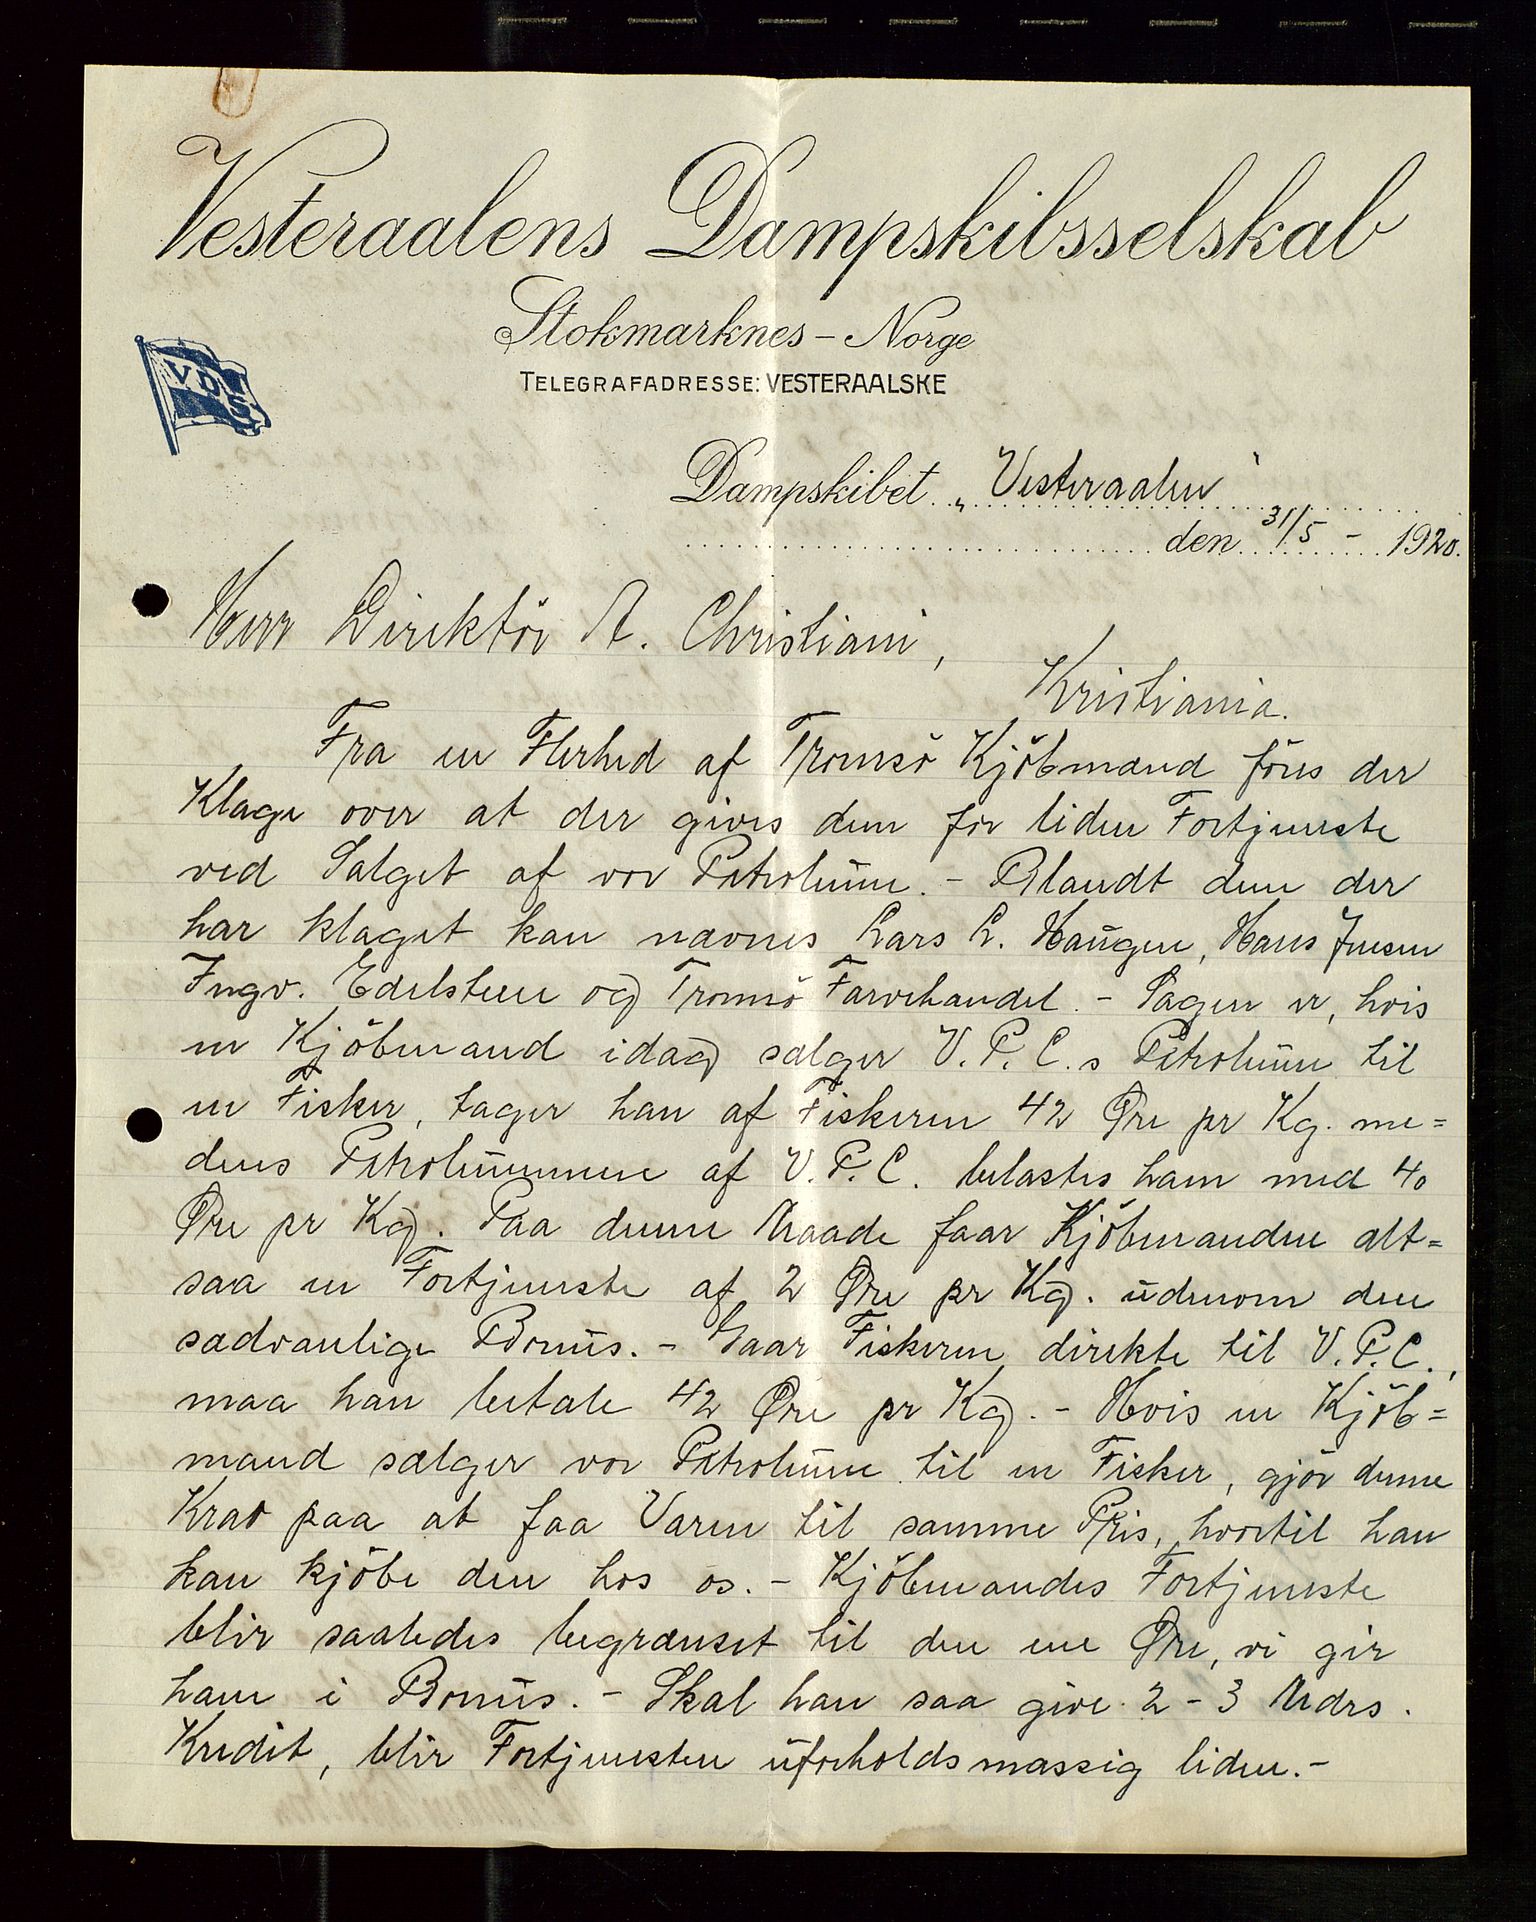 Vesteraalens Dampskibsselskab
Stokmarknes – Norge
TELEGRAFADRESSE: VESTERAALSKE
VDS
Dampskibet „Vesteraalen"
den 31/5 – 1920.
Herr Direktör A. Christiani,
Kristiania.
Fra en Flerhed af Tromsö Kjöbmænd föres der
Klage over at der gives dem for liden Fortjeneste
ved Salget af vor Petroleum. – Blandt dem der
har klaget kan nævnes Lars L. Haugen, Hans Jensen
Ingv. Edelsteen og Tromsö Farvehandel. – Sagen er, hvis
en Kjöbmand idag sælger V.P.C.s Petroleum til
en Fisker, tager han af Fiskeren 42 Øre pr Kg. me=
dens Petroleummen af V.P.C. belastes ham med 40
Øre pr Kg. Paa denne Maade faar Kjöbmanden alt=
saa en Fortjeneste af 2 Øre pr Kg. udenom den
sædvanlige Bonus. – Gaar Fiskeren direkte til V.P.C.,
maa han betale 42 Øre pr Kg. – Hvis en Kjöb=
mand sælger vor Petroleum til en Fisker, gjör denne
Krav paa at faa Varen til samme Pris, hvortil han
kan kjöbe den hos os. – Kjöbmandes Fortjeneste
blir saaledes begrænset til den ene Øre, vi gir
ham i Bonus. – Skal han saa give 2 – 3 Mdrs.
Kredit, blir Fortjenesten uforholdsmæssig liden. –